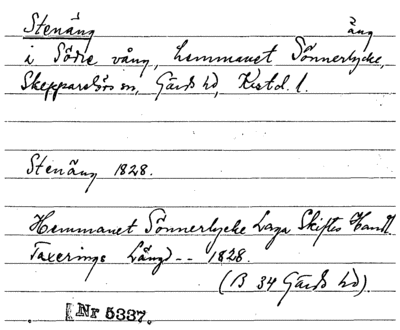 Stenäng äng
i Södre vång, hemmanet Sönnerlycke,
Skepparslövs sn, Gärds hd, Kristd. l.
Stenäng 1828.
Hemmanet Sönnerlycke Laga Skiftes Handl.
Taxerings Längd -- 1828.
(B 34 Gärds hd).
[Nr 5337.